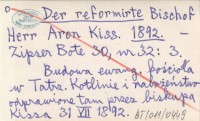 Der reformirte Bischof
Herr Aron Kiss. 1892. –
Zipser Bote 30, nr 32: 3.
Budowa ewang. kościoła
w Tatrz. Kotlinie i nabożeństwo
odprawione tam przez biskupa
Kissa 31 VII 1892.